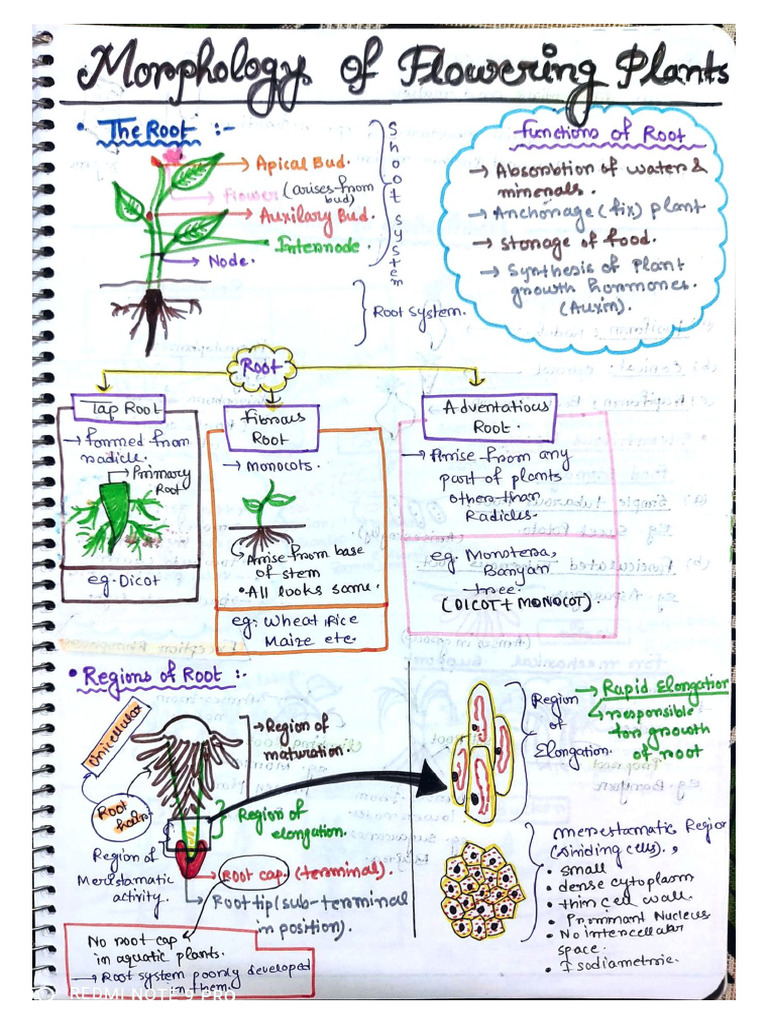 Morphology of Flowering Plants
• The Root :-
Apical Bud.
Flower (arises from
bud)
Auxilary Bud.
Internode
Node.
Shoot system
Root system.
Functions of Root
→ Absorbtion of water &
minerals.
→ Anchorage (fix) plant
→ Storage of food.
→ Synthesis of Plant
growth hormones.
(Auxin).
Root
Tap Root
→ formed from
radicle.
→ Primary
Root
eg. Dicot
Fibrous
Root
→ Monocots.
→ Arise from base
of stem
• All looks same.
eg: Wheat, Rice
Maize etc.
Adventatious
Root.
→ Arise from any
part of plants
other than
Radicles.
eg. Monstera,
Banyan
tree.
(DICOT + MONOCOT).
• Regions of Root :-
Unicellular
Root
hair
→ Region of
maturation.
Region of
elongation.
Region of
Meristamatic
activity.
Root cap. (terminal).
Root tip (sub-terminal
in position).
No root cap
in aquatic plants.
→ Root system poorly developed
in them.
Region
of
Elongation.
→ Rapid Elongation
↳ responsible
for growth
of root
Meristamatic Region
(dividing cells).
• small
• dense cytoplasm
• thin cell wall.
• Prominant Nucleus
• No intercellular
space.
• Isodiametric.
REDMI NOTE 9 PRO